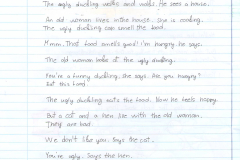 The ugly duckling walks and walks. He sees a house.
An old woman lives in the house. She is cooking.
The ugly duckling can smell the food.
Mmm. That food smells good! I'm hungry, he says.
The old woman looks at the ugly duckling.
You're a funny duckling, she says. Are you hungry?
Eat this food.
The ugly duckling eats the food. Now he feels happy.
But a cat and a hen live with the old woman.
They are bad.
We don't like you, says the cat.
You're ugly, says the hen.